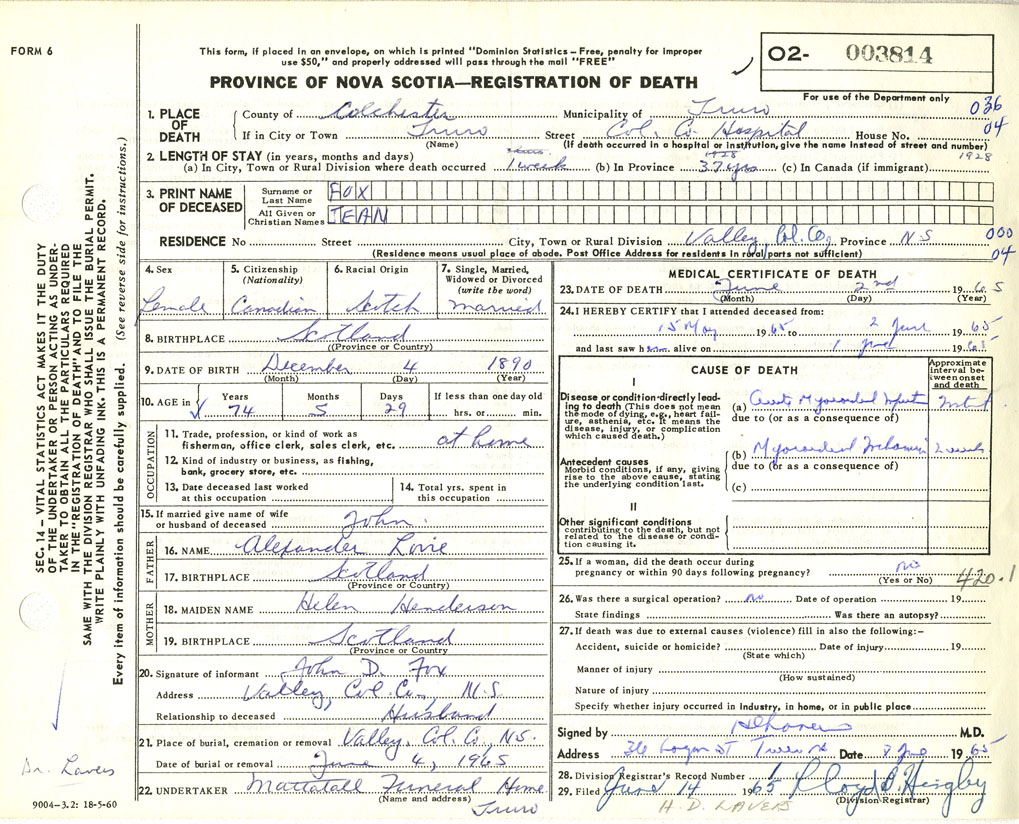 FORM 6
This form, if placed in an envelope, on which is printed "Dominion Statistics – Free, penalty for improper
use $50," and properly addressed will pass through the mail "FREE"
PROVINCE OF NOVA SCOTIA—REGISTRATION OF DEATH
O2- 003814
For use of the Department only
036
04
1. PLACE OF DEATH
County of Colchester Municipality of Truro
If in City or Town Truro Street Col. Co. Hospital House No.
(Name) (If death occurred in a hospital or institution, give the name instead of street and number)
2. LENGTH OF STAY (in years, months and days)
1928 1928
(a) In City, Town or Rural Division where death occurred 1 week (b) In Province 37 yrs (c) In Canada (if immigrant)
3. PRINT NAME OF DECEASED
Surname or Last Name FOX
All Given or Christian Names JEAN
RESIDENCE No Street City, Town or Rural Division Valley, Col. Co, Province N S
000
04
(Residence means usual place of abode. Post Office Address for residents in rural parts not sufficient)
4. Sex Female
5. Citizenship (Nationality) Canadian
6. Racial Origin Scotch
7. Single, Married, Widowed or Divorced (write the word) married
8. BIRTHPLACE Scotland
(Province or Country)
9. DATE OF BIRTH December 4 1890
(Month) (Day) (Year)
10. AGE in Years 74 Months 5 Days 29 If less than one day old hrs. or min.
OCCUPATION
11. Trade, profession, or kind of work as
fisherman, office clerk, sales clerk, etc. at home
12. Kind of industry or business, as fishing,
bank, grocery store, etc.
13. Date deceased last worked
at this occupation
14. Total yrs. spent in
this occupation
15. If married give name of wife
or husband of deceased John
FATHER
16. NAME Alexander Lovie
17. BIRTHPLACE Scotland
(Province or Country)
MOTHER
18. MAIDEN NAME Helen Henderson
19. BIRTHPLACE Scotland
(Province or Country)
20. Signature of informant John D. Fox
Address Valley, Col. Co., N.S
Relationship to deceased Husband
21. Place of burial, cremation or removal Valley, Col. Co, N.S.
Date of burial or removal June 4, 1965
22. UNDERTAKER Mattatall Funeral Home
(Name and address) Truro
MEDICAL CERTIFICATE OF DEATH
23. DATE OF DEATH June 2nd 1965
(Month) (Day) (Year)
24. I HEREBY CERTIFY that I attended deceased from:
15 May 1965 to 2 June 1965
and last saw h alive on 1 June 1965
CAUSE OF DEATH
Approximate interval between onset and death
I
Disease or condition directly leading to death (This does not mean the mode of dying, e.g., heart failure, asthenia, etc. It means the disease, injury, or complication which caused death.)
(a) Acute Myocardial Infarct
due to (or as a consequence of)
Antecedent causes
Morbid conditions, if any, giving rise to the above cause, stating the underlying condition last.
(b) Myocardial Ischaemia 2 weeks
due to (or as a consequence of)
(c)
II
Other significant conditions
contributing to the death, but not related to the disease or condition causing it.
25. If a woman, did the death occur during
pregnancy or within 90 days following pregnancy? no
(Yes or No) 420.1
26. Was there a surgical operation? no Date of operation 19
State findings Was there an autopsy?
27. If death was due to external causes (violence) fill in also the following:–
Accident, suicide or homicide? Date of injury 19
(State which)
Manner of injury
(How sustained)
Nature of injury
Specify whether injury occurred in industry, in home, or in public place
Signed by H D Lavers M.D.
Address 36 Logan St Truro NS Date 8 June 1965
28. Division Registrar's Record Number
29. Filed June 14 1965 Lloyd B. Heighy
(Division Registrar)
H. D. LAVERS
SEC. 14 – VITAL STATISTICS ACT MAKES IT THE DUTY
OF THE UNDERTAKER OR PERSON ACTING AS UNDER-
TAKER TO OBTAIN ALL THE PARTICULARS REQUIRED
IN THE "REGISTRATION OF DEATH" AND TO FILE THE
SAME WITH THE DIVISION REGISTRAR WHO SHALL ISSUE THE BURIAL PERMIT.
WRITE PLAINLY WITH UNFADING INK. THIS IS A PERMANENT RECORD.
Every item of information should be carefully supplied. (See reverse side for instructions.)
Dr. Lavers
9004–3.2: 18-5-60